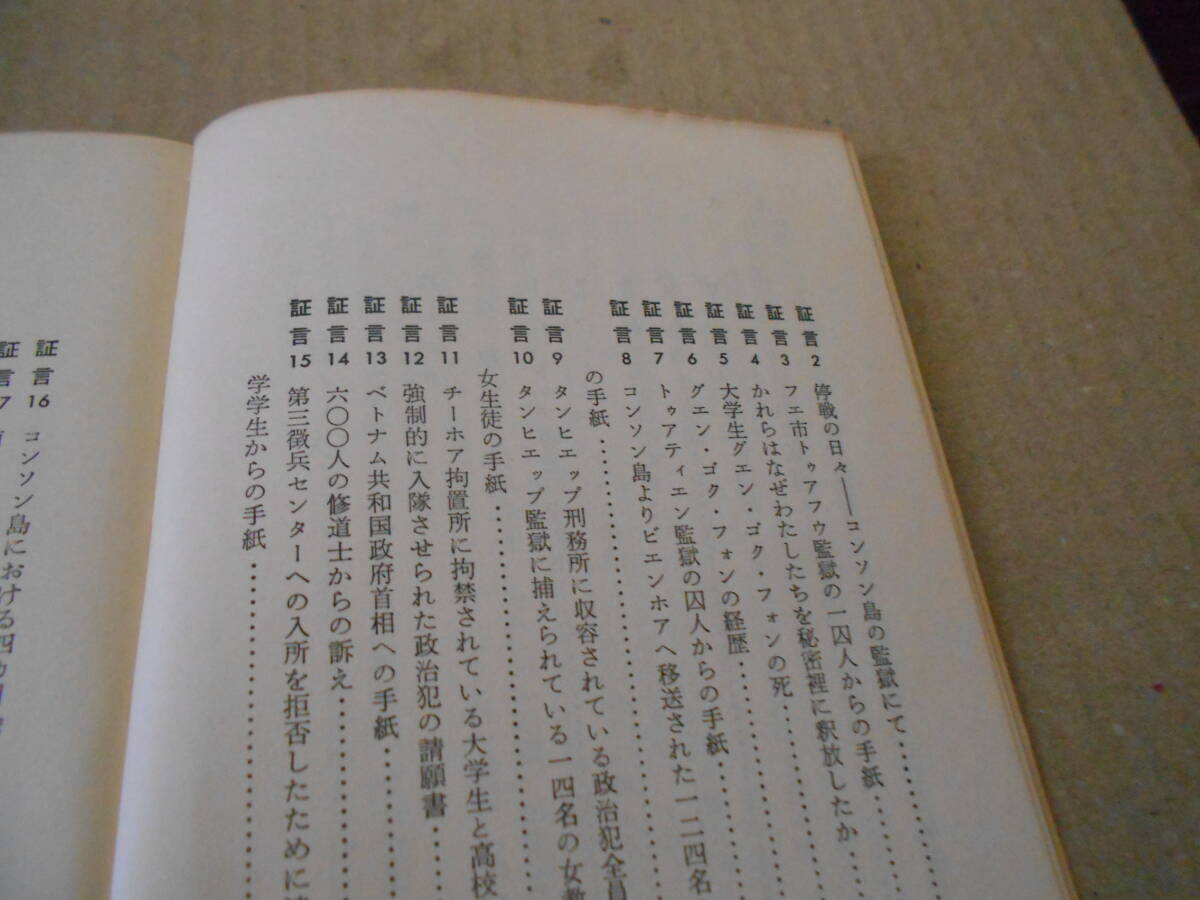 証言2 停戦の日々――コンソン島の監獄にて………
証言3 フエ市トゥアフウ監獄の一囚人からの手紙………
証言4 かれらはなぜわたしたちを秘密裡に釈放したか………
証言5 大学生グエン・ゴク・フォンの死………
証言6 グエン・ゴク・フォンの経歴………
証言7 トゥアティエン監獄の囚人からの手紙………
証言8 コンソン島よりビエンホアへ移送された一二四名
の手紙………
証言9 タンヒェップ刑務所に収容されている政治犯全員
証言10 タンヒェップ監獄に捕えられている一四名の女教
女生徒の手紙………
証言11 チーホア拘置所に拘禁されている大学生と高校
証言12 強制的に入隊させられた政治犯の請願書………
証言13 ベトナム共和国政府首相への手紙………
証言14 六〇〇人の修道士からの訴え………
証言15 第三徴兵センターへの入所を拒否したために
学学生からの手紙………
証言16 コンソン島における四カ
証言 7